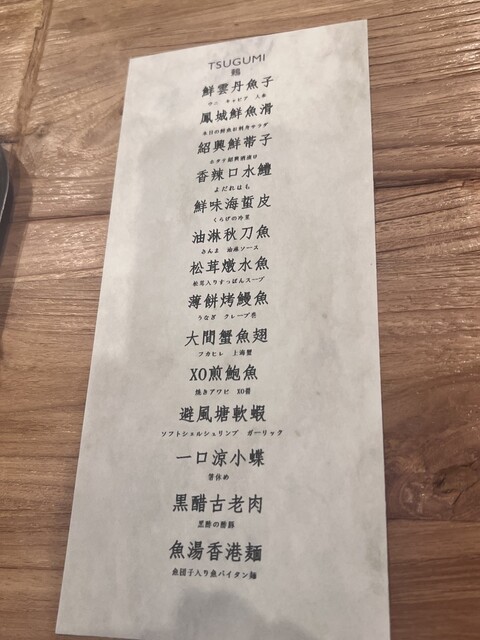 TSUGUMI
鶫
鮮雲丹魚子
ウニ キャビア 人参
鳳城鮮魚滑
本日の鮮魚お刺身サラダ
紹興鮮帯子
ホタテ紹興酒漬け
香辣口水鱧
よだれはも
鮮味海蜇皮
くらげの冷菜
油淋秋刀魚
さんま 油淋ソース
松茸燉水魚
松茸入りすっぽんスープ
薄餅烤鰻魚
うなぎ クレープ巻
大閘蟹魚翅
フカヒレ 上海蟹
XO煎鮑魚
焼きアワビ XO醤
避風塘軟蝦
ソフトシェルシュリンプ ガーリック
一口涼小蝶
箸休め
黒醋古老肉
黒酢の酢豚
魚湯香港麺
魚団子入り魚パイタン麺